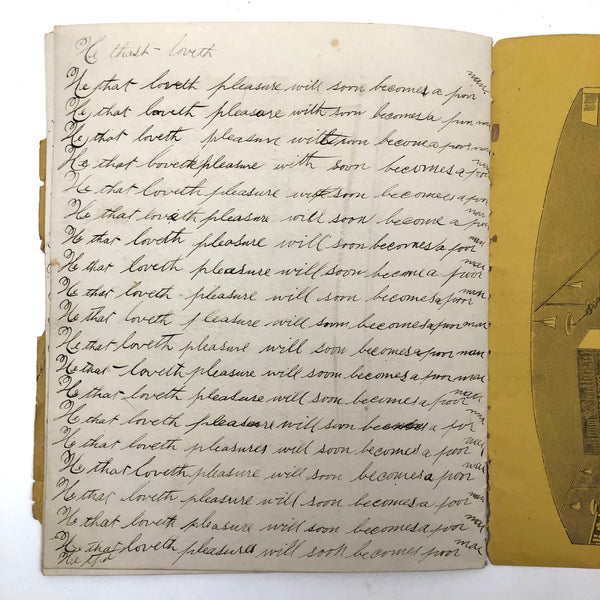 He thast - loveth
He that loveth pleasure will soon becomes a poor man
He that loveth pleasure with soon become a poor man
He that loveth pleasure will soon become a poor man
He that boveth pleasure with soon becomes a poor man
He that loveth pleasure will soon becomes a poor man
He that loveth pleasure will soon become a poor man
He that loveth pleasure will soon becomes a poor man
He that loveth pleasure will soon become a poor man
He that loveth pleasure will soon becomes a poor man
He that loveth pleasure will soon becomes a poor man
He that loveth pleasure will soon becomes a poor man
He that - loveth pleasure will soon becomes a poor man
He that loveth pleasure will soon becomes a poor man
He that loveth pleasure will soon becomes a poor man
He that loveth pleasures will soon becomes a poor man
He that loveth pleasure will soon becomes a poor man
He that loveth pleasure will soon becomes a poor man
He that loveth pleasure will soon becomes a poor man
He that loveth pleasures will soon becomes poor man
He